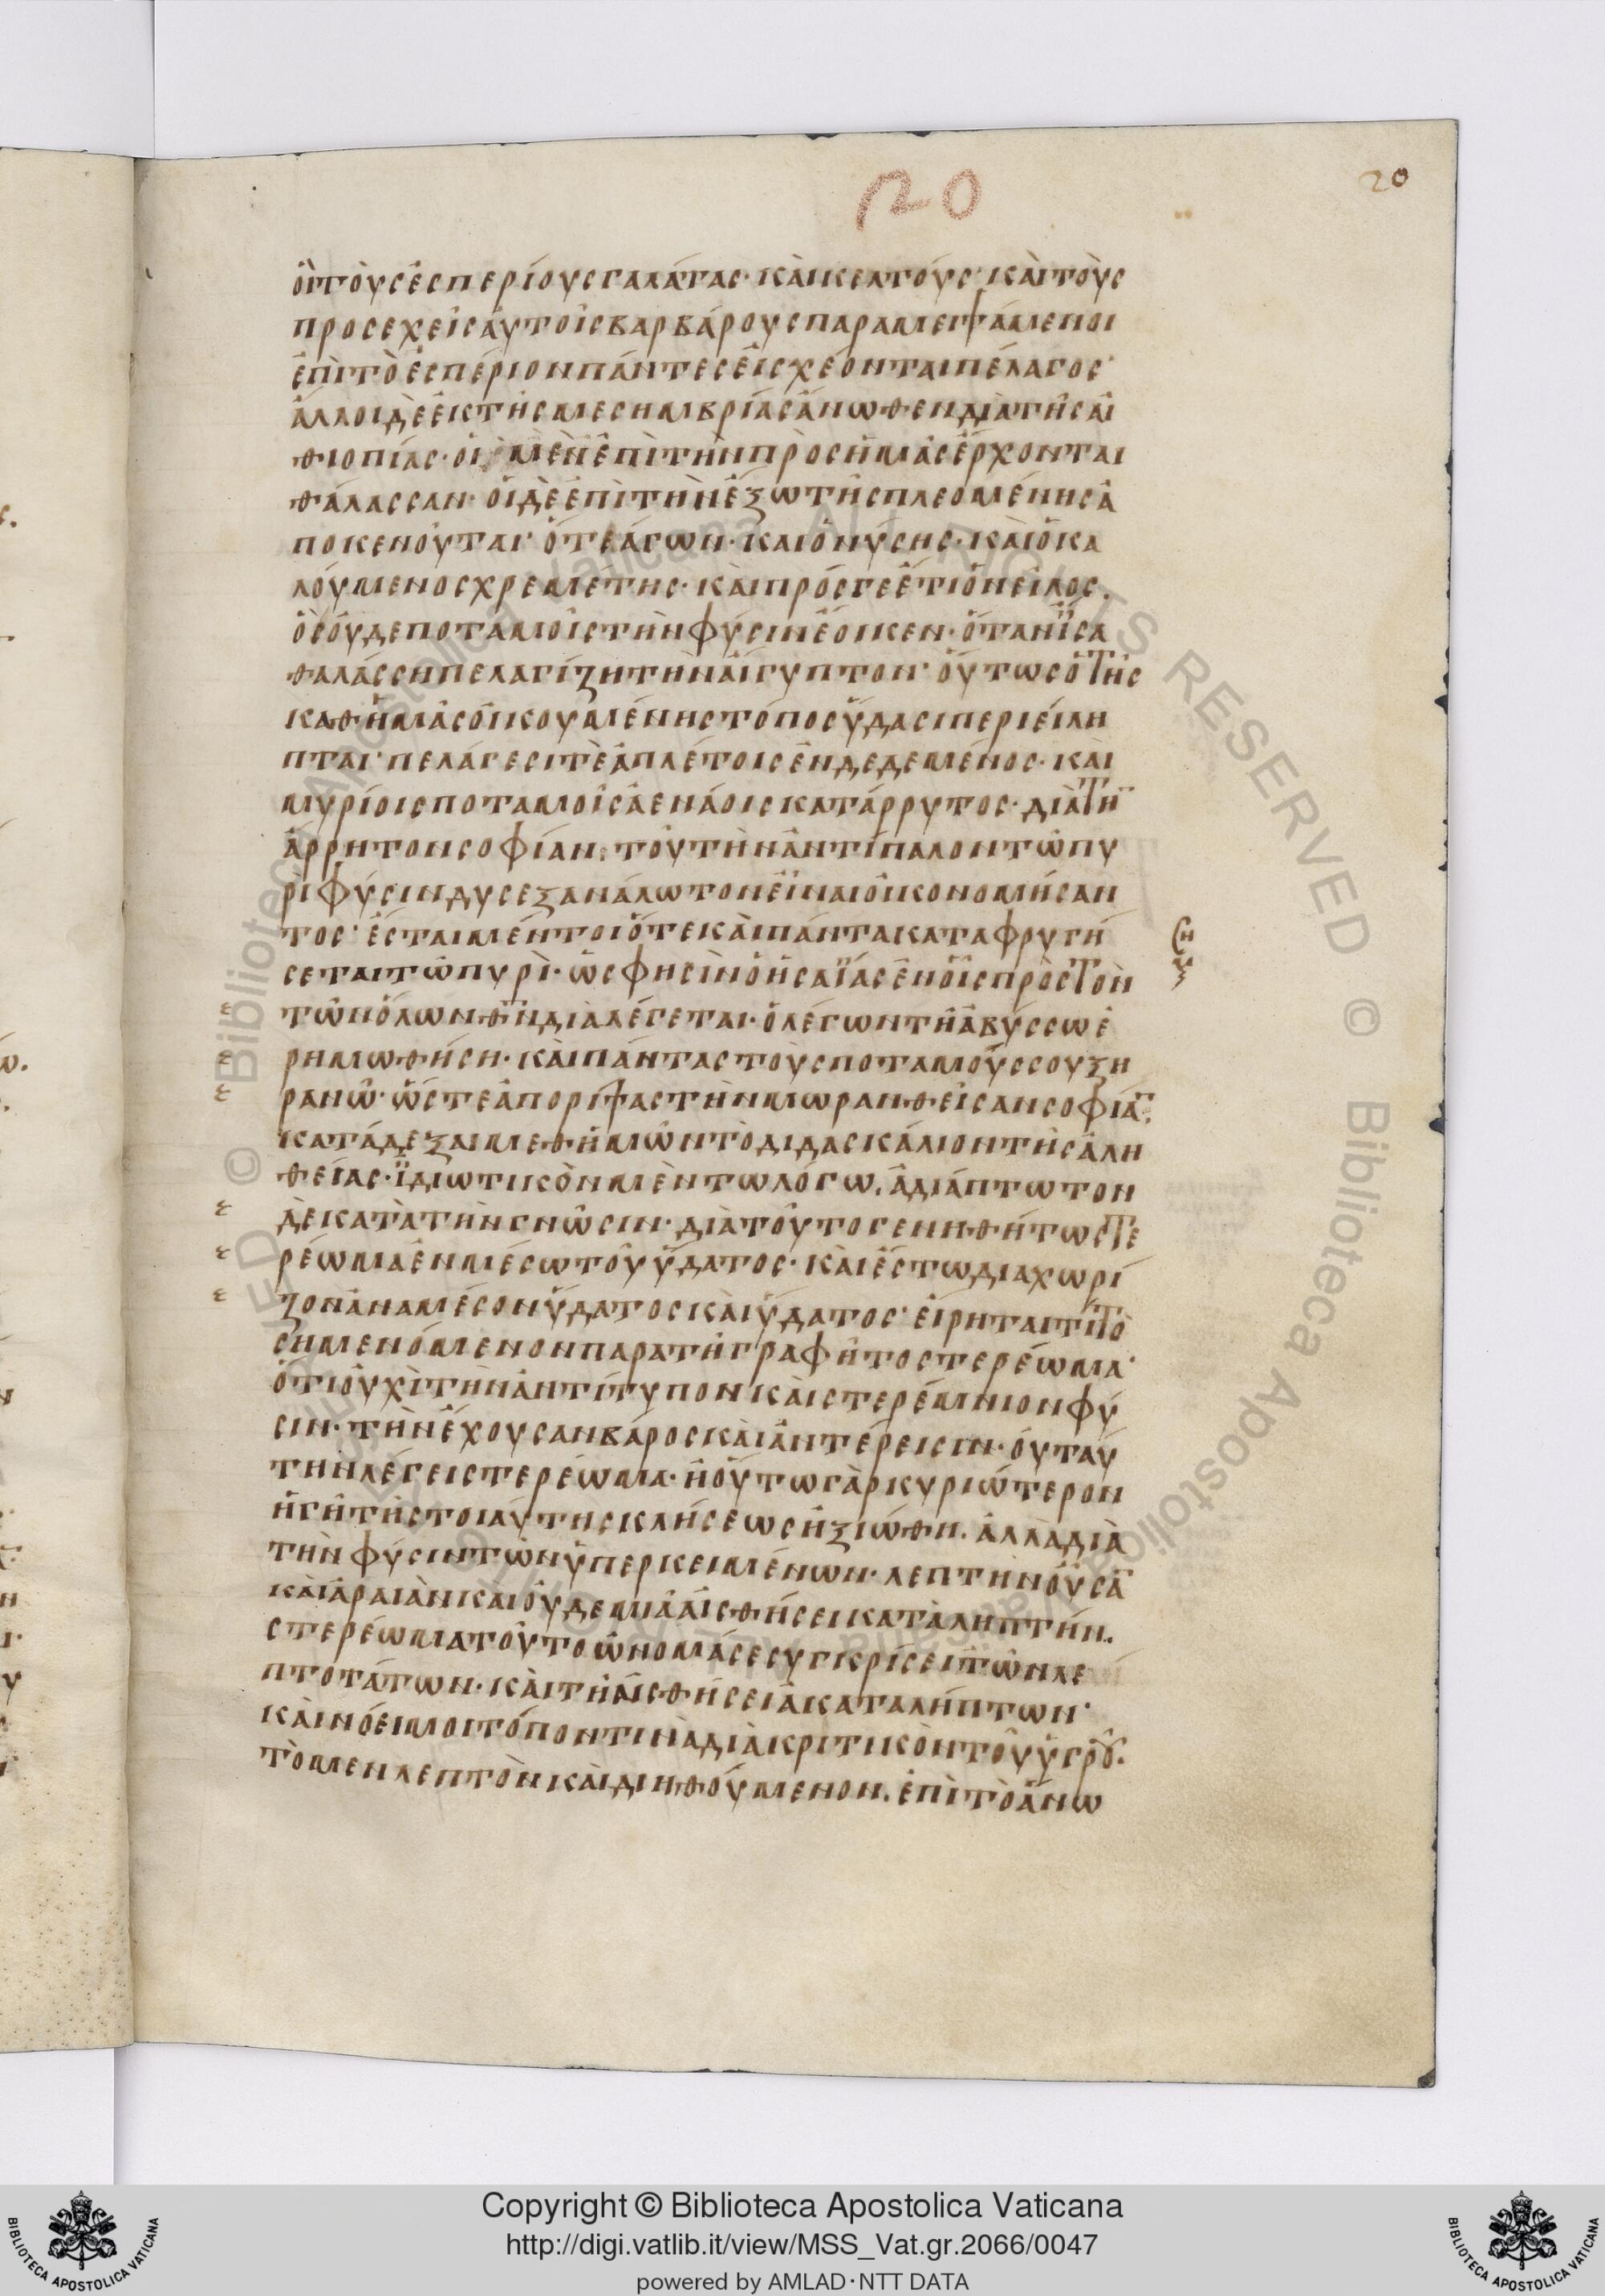 20
20
οἳ τοὺς ἑσπερίους γαλάτας· καὶ κελτούς· καὶ τοὺς
προσεχεῖς αὐτοῖς βαρβάρους παραμειψάμενοι
ἐπὶ τὸ ἑσπέριον πάντες εἰσχέονται πέλαγος·
ἄλλοι δὲ ἐκ τῆς μεσημβρίας ἄνωθεν διὰ τῆς αἰ
θιοπίας· οἱ μὲν ἐπὶ τὴν πρὸς ἡμᾶς ἔρχονται
θάλασσαν· οἱ δὲ ἐπὶ τὴν ἔξω τῆς πλεομένης ἀ
ποκενοῦται· ὅτε ἄγων· καὶ ὁ νύσης· καὶ ὁ κα
λούμενος χρεμέτης· καὶ πρός γε ἔτι ὁ νεῖλος.
ὃς οὐδε ποταμοῖς τὴν φύσιν ἔοικεν· ὅταν ἴσα
θαλάσση πελαγίζη τὴν αἴγυπτον· οὕτως ὁ τῆς
καθ ἡμᾶς οἰκουμένης τόπος ὕδασι περιείλη
πται· πελάγεσι τὲ ἀπλέτοις ἐνδεδεμένος· καὶ
μυρίοις ποταμοῖς ἀενάοις κατάρρυτος· διὰ τὴ
ἄρρητον σοφίαν· τοῦ τὴν ἀντίπαλον τῶ πυ
ρὶ φύσιν δυσεξανάλωτον εἶναι οἰκονομήσαν
τος· ἔσται μέντοι ὅτε καὶ πάντα καταφρυγή
σεται τῶ πυρὶ· ὥς φησὶν ὁ ἡσαΐας ἐν οἷς πρὸς τὸν
τῶν ὅλων θν διαλέγεται· ὁ λέγων τῆ ἀβύσσω ἐ
ρημωθήση· καὶ πάντας τοὺς ποταμούς σου ξη
ρανῶ· ὥστε ἀπορίψας τὴν μωρανθεῖσαν σοφία·
κατάδεξαι μεθ ἡμῶν τὸ διδασκάλιον τῆς ἀλη
θείας· ἰδιωτικὸν μὲν τω λόγω. ἀδιάπτωτον
δὲ κατὰ τὴν γνῶσιν· διὰ τοῦτο γενηθήτω στε
ρέωμα ἐν μέσω τοῦ ὕδατος· καὶ ἔστω διαχωρί
ζον ἀναμέσον ὕδατος καὶ ὕδατος· εἴρηται τί τὸ
σημενόμενον παρα τῆ γραφῆ τo στερέωμα·
ὅτι οὐχὶ τὴν ἀντίτυπον καὶ στερέμνιον φύ
σιν· τὴν ἔχουσαν βάρος καὶ ἀντέρεισιν· ού ταύ
την λέγει στερέωμα· ἢ οὕτω γὰρ κυριώτερον
ἡ γῆ τῆς τοιαύτης κλήσεως ἠξιώθη. ἀλλὰ διὰ
τὴν φύσιν τῶν ὑπερκειμένων· λεπτὴν οὖσα
καὶ ἀραιὰν καὶ οὐδεμιᾶ αἰσθήσει καταληπτήν.
στερέωμα τοῦτο ὠνομάσε συγκρίσει τῶν λε
πτοτάτων· καὶ τῆ αἰσθήσει ἀκαταλήπτων·
καὶ νόει μοι τόπον τινὰ διακριτικὸν τοῦ ὑγροῦ.
τὸ μεν λεπτὸν καὶ διηθούμενον. ἐπὶ τὸ ἄνω
Copyright © Biblioteca Apostolica Vaticana
http://digi.vatlib.it/view/MSS_Vat.gr.2066/0047
powered by AMLAD·NTT DATA